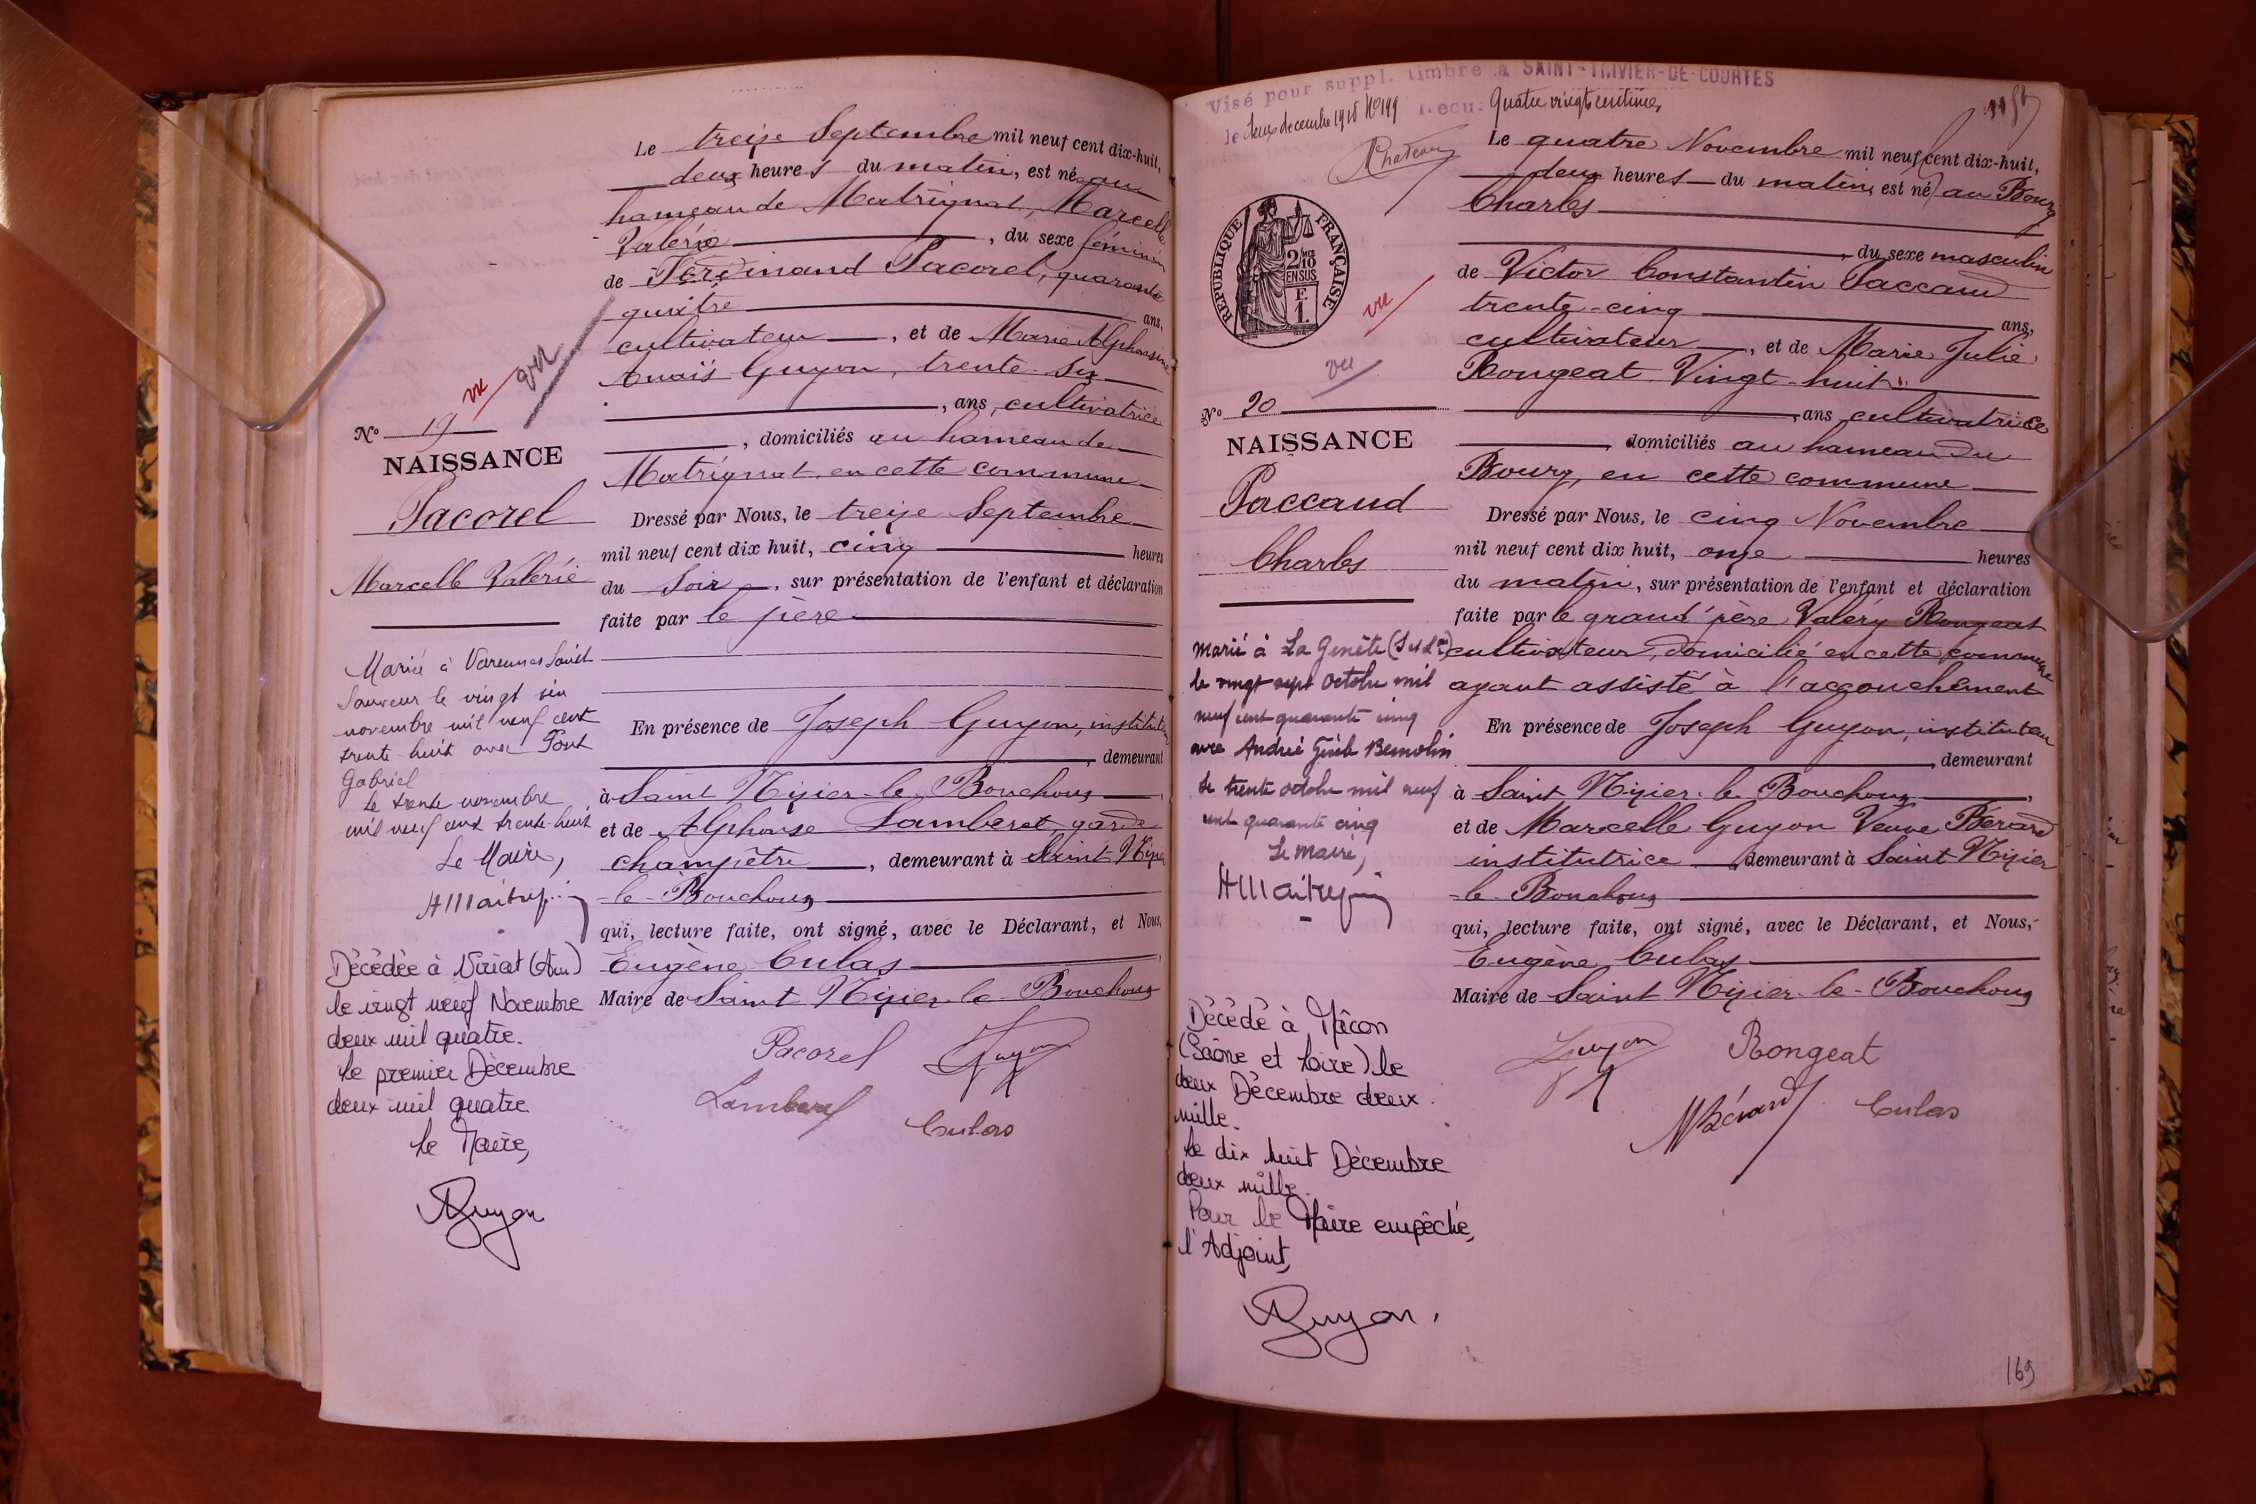 Le treize Septembre mil neuf cent dix-huit,
deux heures du matin, est né au
hameau de Matrignat, Marcelle
Valérie, du sexe féminin
de Ferdinand Pacorel, quarante
quatre ans,
cultivateur, et de Marie Alphonsine
Anaïs Guyon, trente-six
, ans, cultivatrice
, domiciliés au hameau de
Matrignat, en cette commune
Dressé par Nous, le treize Septembre
mil neuf cent dix huit, cinq heures
du soir, sur présentation de l'enfant et déclaration
faite par le père
En présence de Joseph Guyon, instituteur
, demeurant
à Saint Nizier-le-Bouchoux,
et de Alphonse Lamberet garde
champêtre, demeurant à Saint Nizier
-le-Bouchoux
qui, lecture faite, ont signé, avec le Déclarant, et Nous,
Eugène Culas,
Maire de Saint Nizier-le-Bouchoux
Pacorel Guyon
Lamberet
Culas
vu vu
No 19
NAISSANCE
Pacorel
Marcelle Valérie
Mariée à Varennes Saint
Sauveur le vingt six
novembre mil neuf cent
trente-huit avec Pont
Gabriel
Le trente novembre
mil neuf cent trente-huit
Le Maire,
Décédée à Viriat (Ain)
le vingt neuf Novembre
deux mil quatre.
Le premier Décembre
deux mil quatre.
Le Maire,
Guyon
Visé pour suppl. timbre à SAINT-TRIVIER-DE-COURTES
le deux décembre 1918 No 199 Reçu: Quatre vingt centimes
Chateau
REPUBLIQUE FRANÇAISE
2/10 EN SUS
F
1.
vu
vu
No 20
NAISSANCE
Paccaud
Charles
Marié à La Genête (S et L re)
le vingt sept Octobre mil
neuf cent quarante cinq
avec Andrée Bernolin
Le trente octobre mil neuf
cent quarante cinq
Le Maire,
Décédé à Mâcon
(Saône et Loire) le
deux Décembre deux
mille.
Le dix huit Décembre
deux mille.
Pour le Maire empêché,
l'Adjoint,
Guyon.
Le quatre Novembre mil neuf cent dix-huit,
deux heures du matin, est né au Bourg
Charles
, du sexe masculin
de Victor Constantin Paccaud
trente-cinq ans,
cultivateur, et de Marie Julie
Rongeat Vingt-huit
, ans cultivatrice
, domiciliés au hameau du
Bourg, en cette commune
Dressé par Nous, le cinq Novembre
mil neuf cent dix huit, onze heures
du matin, sur présentation de l'enfant et déclaration
faite par le grand'père Valéry Rongeat
cultivateur, domicilié en cette commune
ayant assisté à l'accouchement
En présence de Joseph Guyon, instituteur
, demeurant
à Saint Nizier-le-Bouchoux,
et de Marcelle Guyon Veuve Bérard
institutrice, demeurant à Saint Nizier
-le-Bouchoux
qui, lecture faite, ont signé, avec le Déclarant, et Nous,
Eugène Culas
Maire de Saint Nizier-le-Bouchoux
Guyon Rongeat
MBérard Culas
169